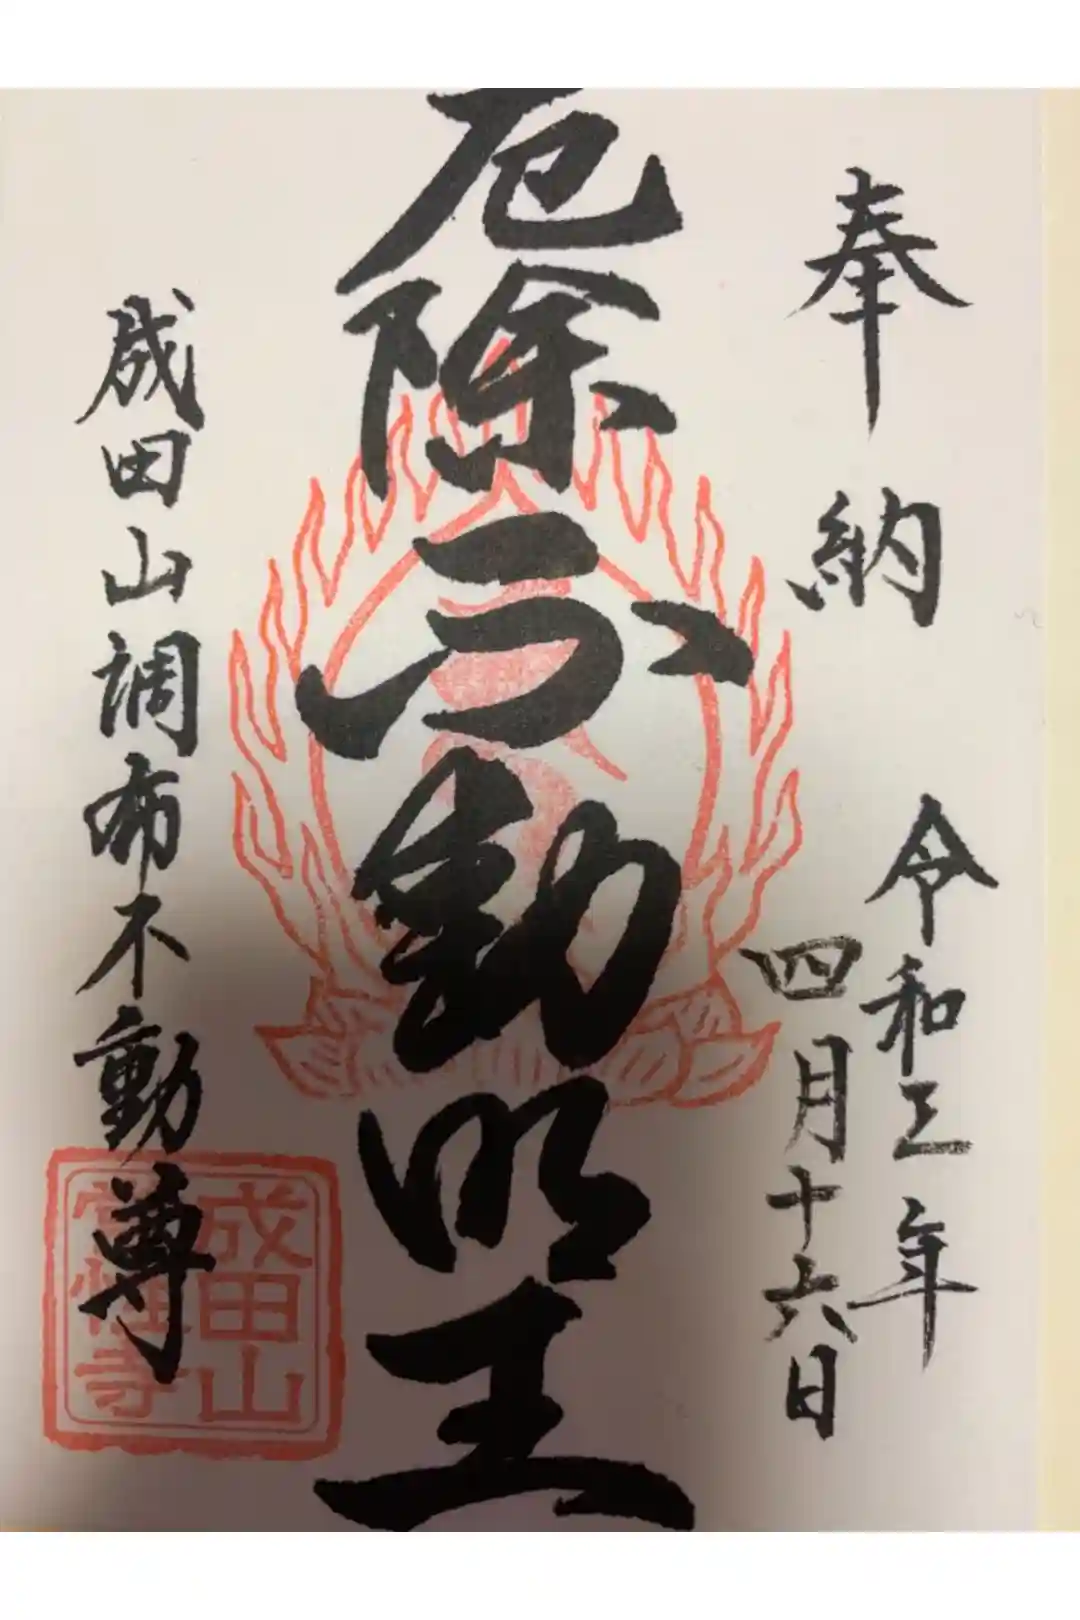 奉納
令和三年
四月十六日
厄除不動明王
成田山調布不動尊
成田山
常性寺